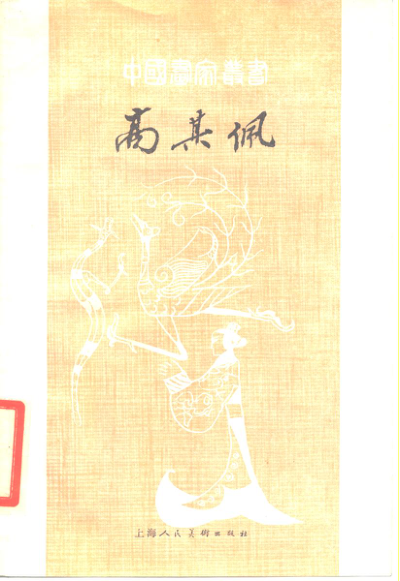 中國畫家叢書
高其佩
上海人民美術出版社